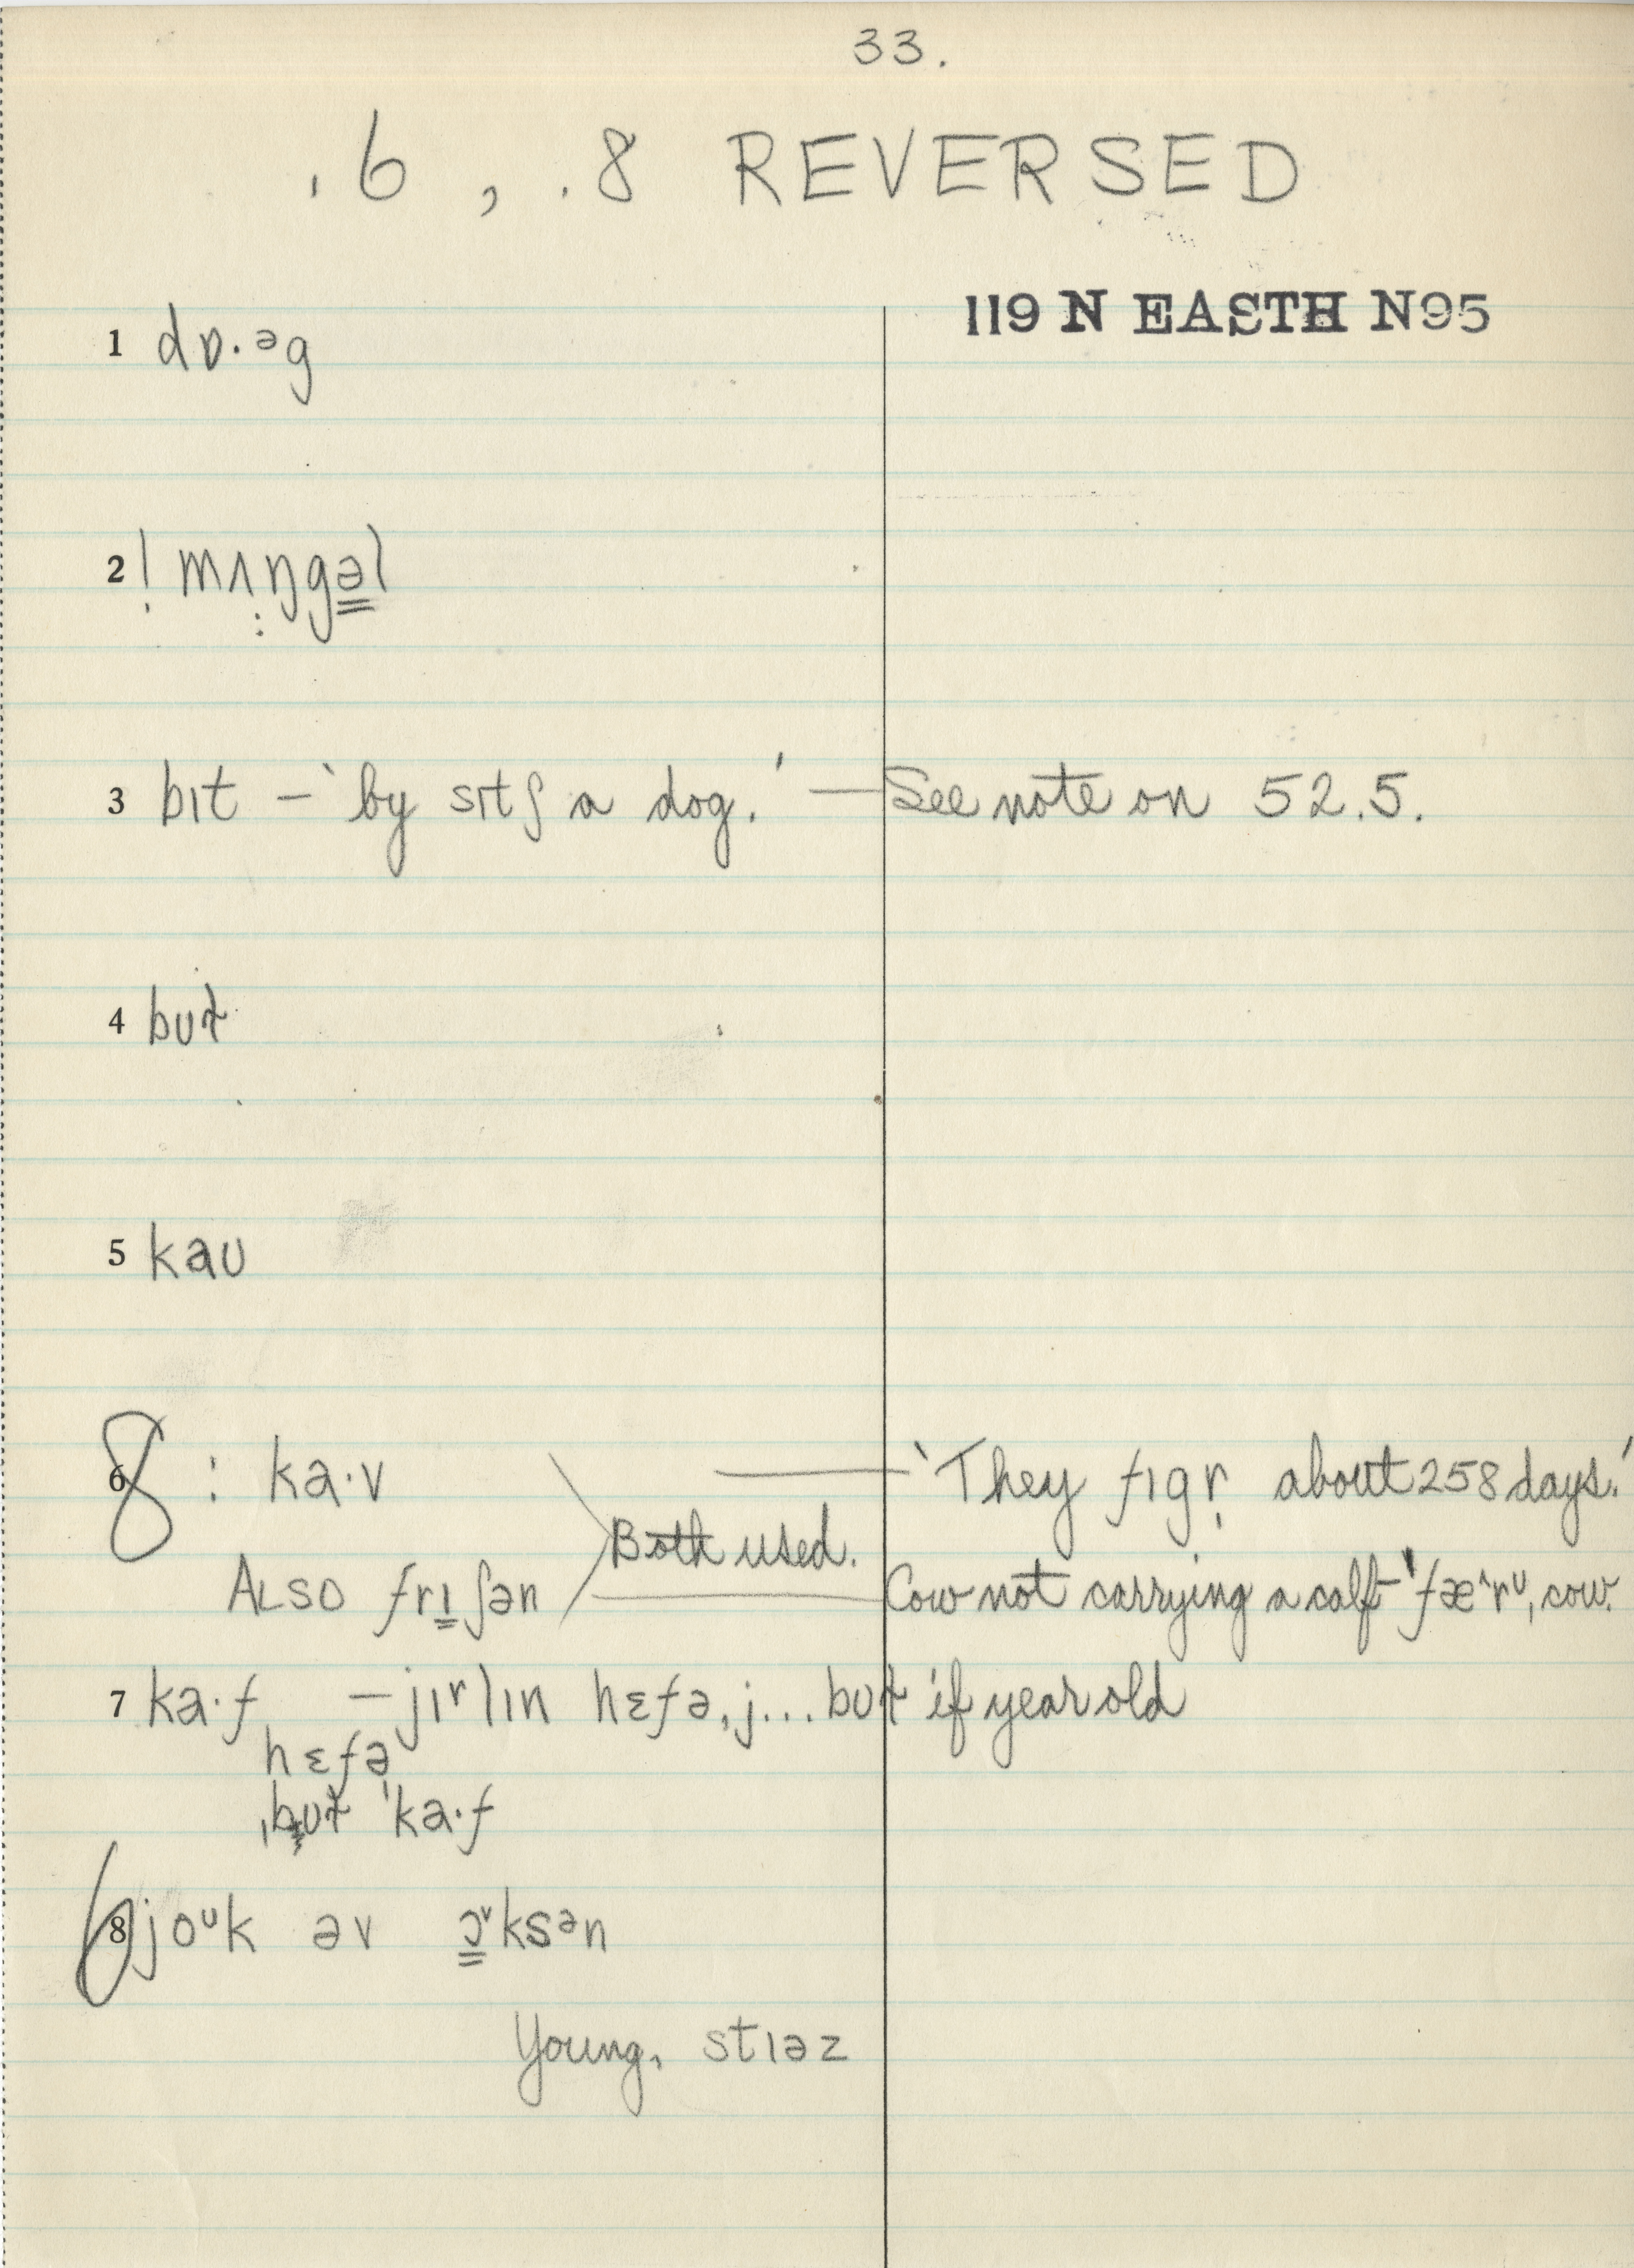 33.
.6 , .8 REVERSED
119 N EASTH N95
1 dɒ·ᵊg
2 ! mʌŋgəl
3 bɪt – 'by sɪtʃ a dog.' — See note on 52.5.
4 bʊt
5 kaʊ
8 : ka·v — 'They fɪgr about 258 days.'
Both used.
ALSO frɪʃən — Cow not carrying a calf 'fæ^rᵁ, cow.
7 ka·f – jɪʳlɪn hɛfə, j... but if year old
hɛfə
ˌbʊt 'ka·f
6 joᵘk əv ɔᵛksᵊn
Young, stɪəz